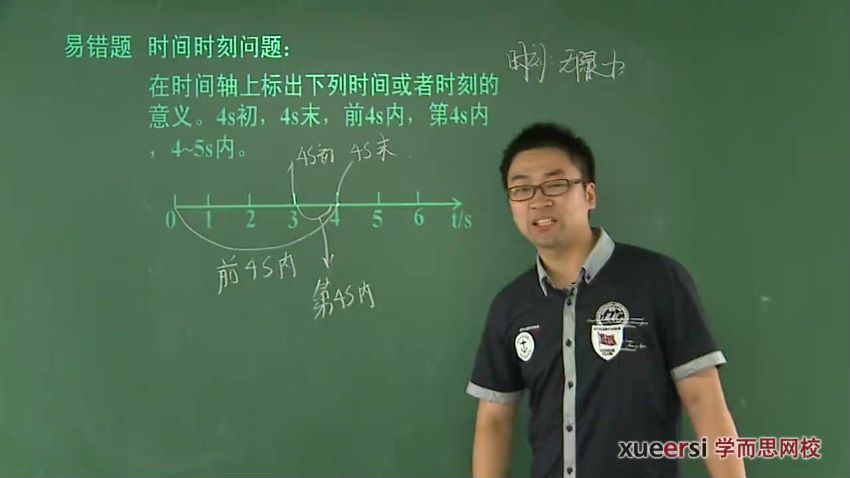 易错题 时间时刻问题：
时刻：无限小
在时间轴上标出下列时间或者时刻的
意义。4s初，4s末，前4s内，第4s内
，4~5s内。
4S初 4S末
0 1 2 3 4 5 6 t/s
前4S内
第4S内
xueersi 学而思网校